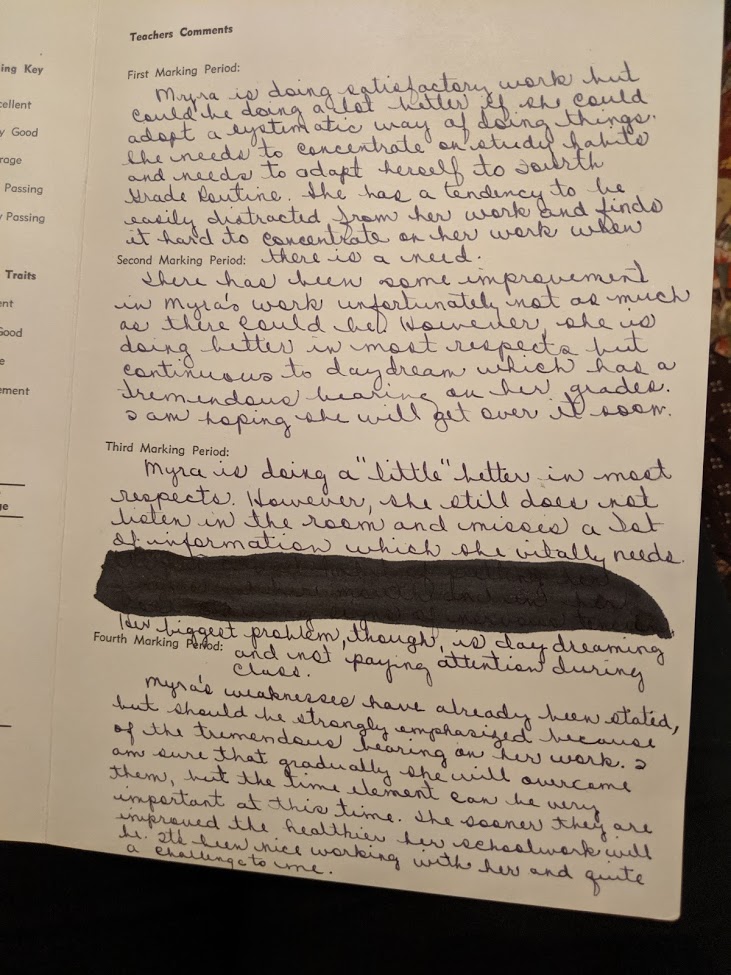 ing Key
cellent
y Good
rage
Passing
y Passing
Traits
ent
Good
e
ement
ge
Teachers Comments
First Marking Period:
Myra is doing satisfactory work but
could be doing a lot better if she could
adopt a systimatic way of doing things.
She needs to concentrate on study habits
and needs to adapt herself to Fourth
Grade Routine. She has a tendency to be
easily distracted from her work and finds
it hard to concentrate on her work when
there is a need.
Second Marking Period:
There has been some improvement
in Myra's work unfortunately not as much
as there could be. However, she is
doing better in most respects but
continuous to daydream which has a
tremendous bearing on her grades.
I am hoping she will get over it soon.
Third Marking Period:
Myra is doing a "little" better in most
respects. However, she still does not
listen in the room and misses a lot
of information which she vitally needs.
Her biggest problem, though, is day dreaming
and not paying attention during
class.
Fourth Marking Period:
Myra's weaknesses have already been stated,
but should be strongly emphasized because
of the tremendous bearing on her work. I
am sure that gradually she will overcome
them, but the time element can be very
important at this time. The sooner they are
improved the healthier her schoolwork will
be. It's been nice working with her and quite
a challenge to me.